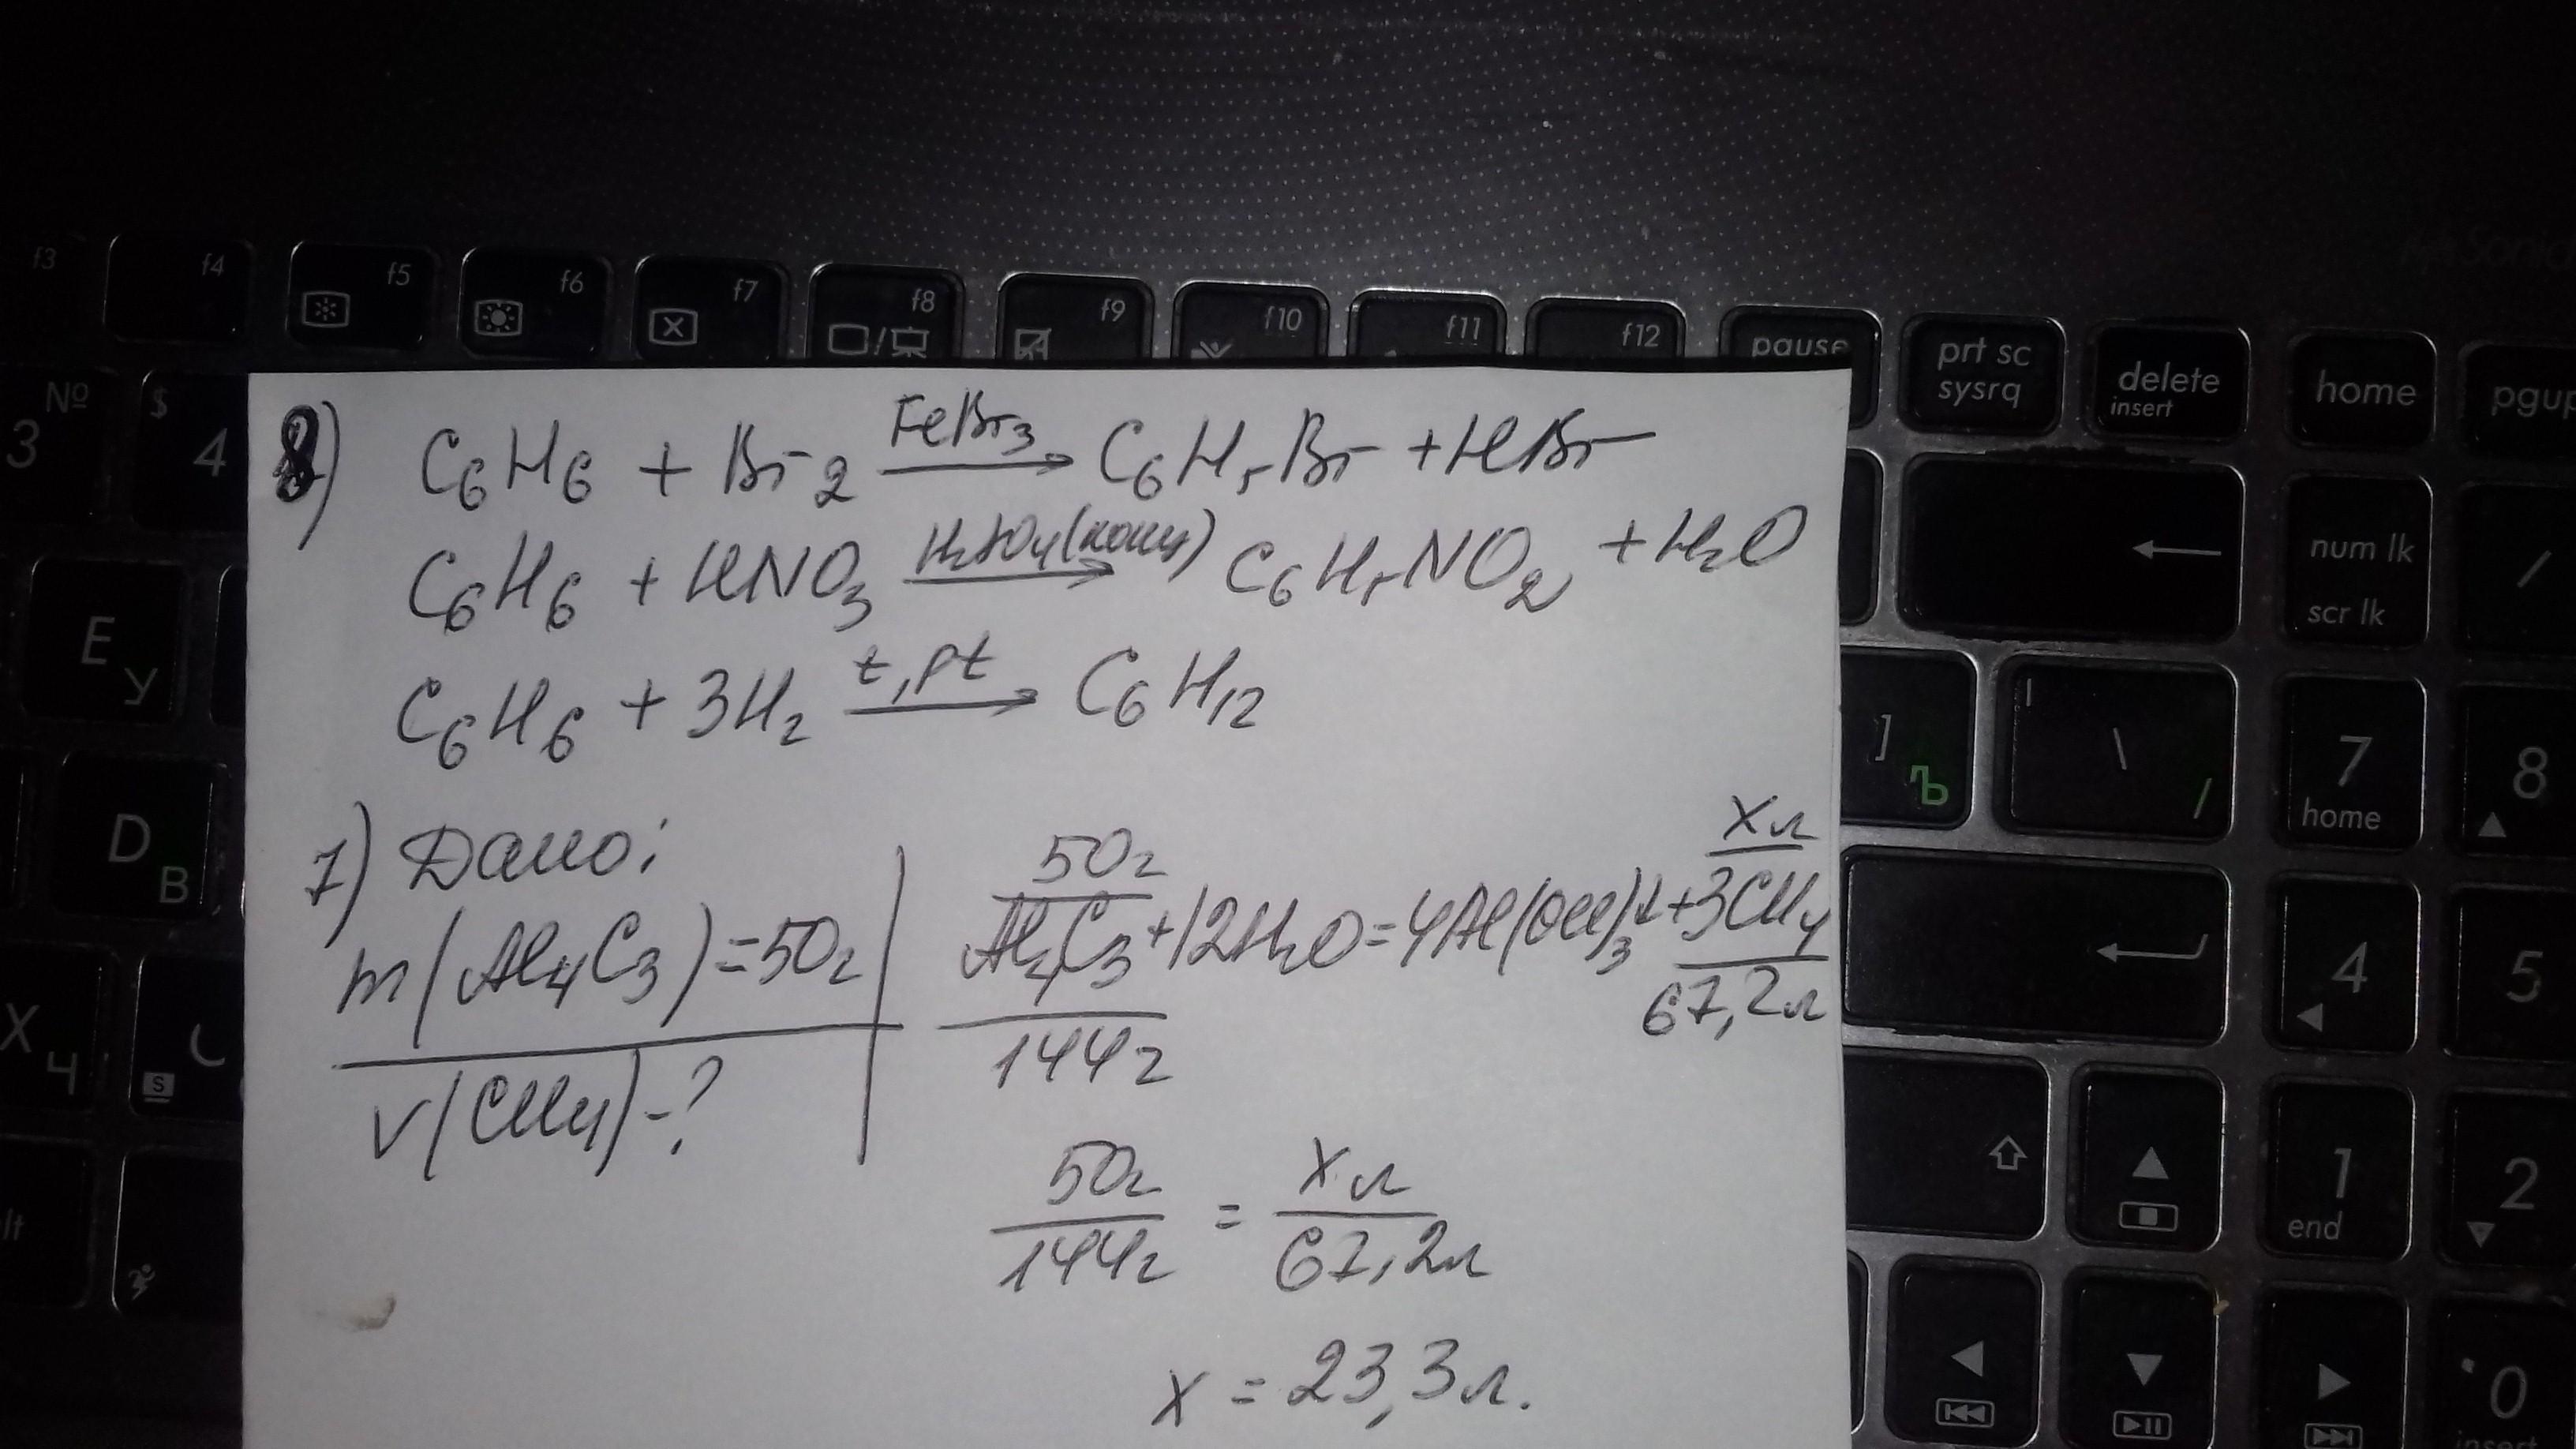 f3 f4 f5 f6 f7 f8 f9 f10 f11 f12 pause prt sc sysrq delete insert home
№ 3 $ 4
8) C₆H₆ + Br₂ FeBr₃→ C₆H₅Br + HBr
C₆H₆ + HNO₃ H₂SO₄(конц)→ C₆H₅NO₂ + H₂O
C₆H₆ + 3H₂ t, pt→ C₆H₁₂
7) Дано:
m(Al₄C₃)=50г
V(CH₄)-?
50г xл
Al₄C₃+12H₂O=4Al(OH)₃↓+3CH₄
144г 67,2л
50г/144г = xл/67,2л
x = 23,3л.
num lk
scr lk
/
E У
] Ъ
| \ /
7 home
8
D В
4
5
X Ч
S
1 end
2
0